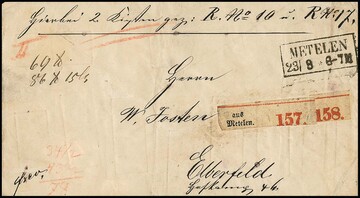 Hierbei 2 Kisten gez: R. No 16 u. R No 17,
METELEN
23/8 6-7N
69 ℔.
56 ℔ 15/
Herrn
W. Josten
aus
Metelen. 157. 158.
Elberfeld